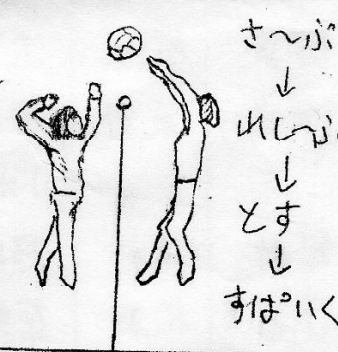 さ〜ぶ
れし〜ぶ
とす
すぱいく